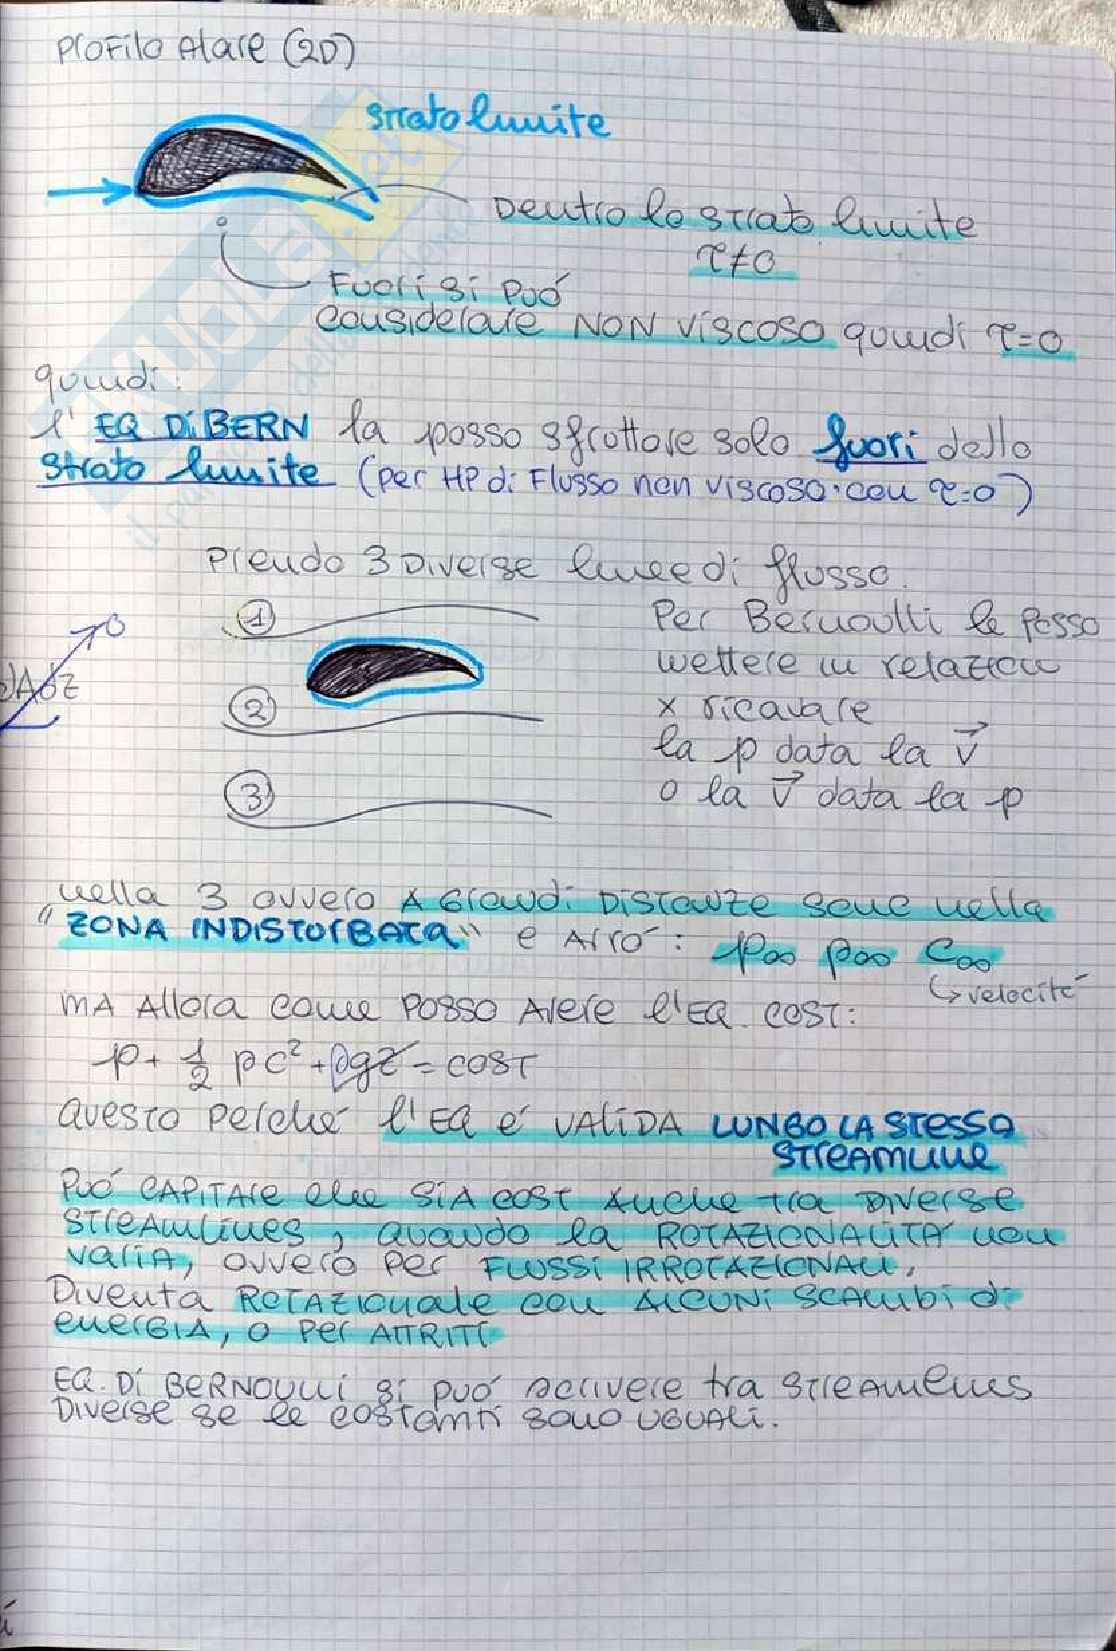 Profilo Alare (2D)
strato limite
Dentro lo strato limite
τ≠0
Fuori si può
considerare NON viscoso quindi τ=0
quindi:
l' EQ Di BERN la posso sfruttare solo fuori dallo
strato limite (per HP di Flusso non viscoso con τ=0)
Prendo 3 Diverse linee di flusso.
1
Per Bernoulli le posso
mettere in relazione
2
x ricavare
la p data la v⃗
3
o la v⃗ data la p
nella 3 ovvero A Grandi Distanze sono nella
"ZONA INDISTURBATA" e Avrò: p∞ ρ∞ C∞
↳ velocità
MA Allora come posso Avere l'EQ. COST:
p + 1/2 ρc² + ρgz = COST
Questo perché l'EQ é VALIDA LUNGO LA STESSA
STREAMLINE
Può CAPITARE che SIA COST Anche tra Diverse
STREAMLINES, quando la ROTAZIONALITÀ non
varia, ovvero per FLUSSI IRROTAZIONALI,
Diventa ROTAZIONALE con ALCUNI SCAMBI di
energia, o per ATTRITI
EQ. Di BERNOULLI si può scrivere tra streamlines
Diverse se le costanti sono uguali.